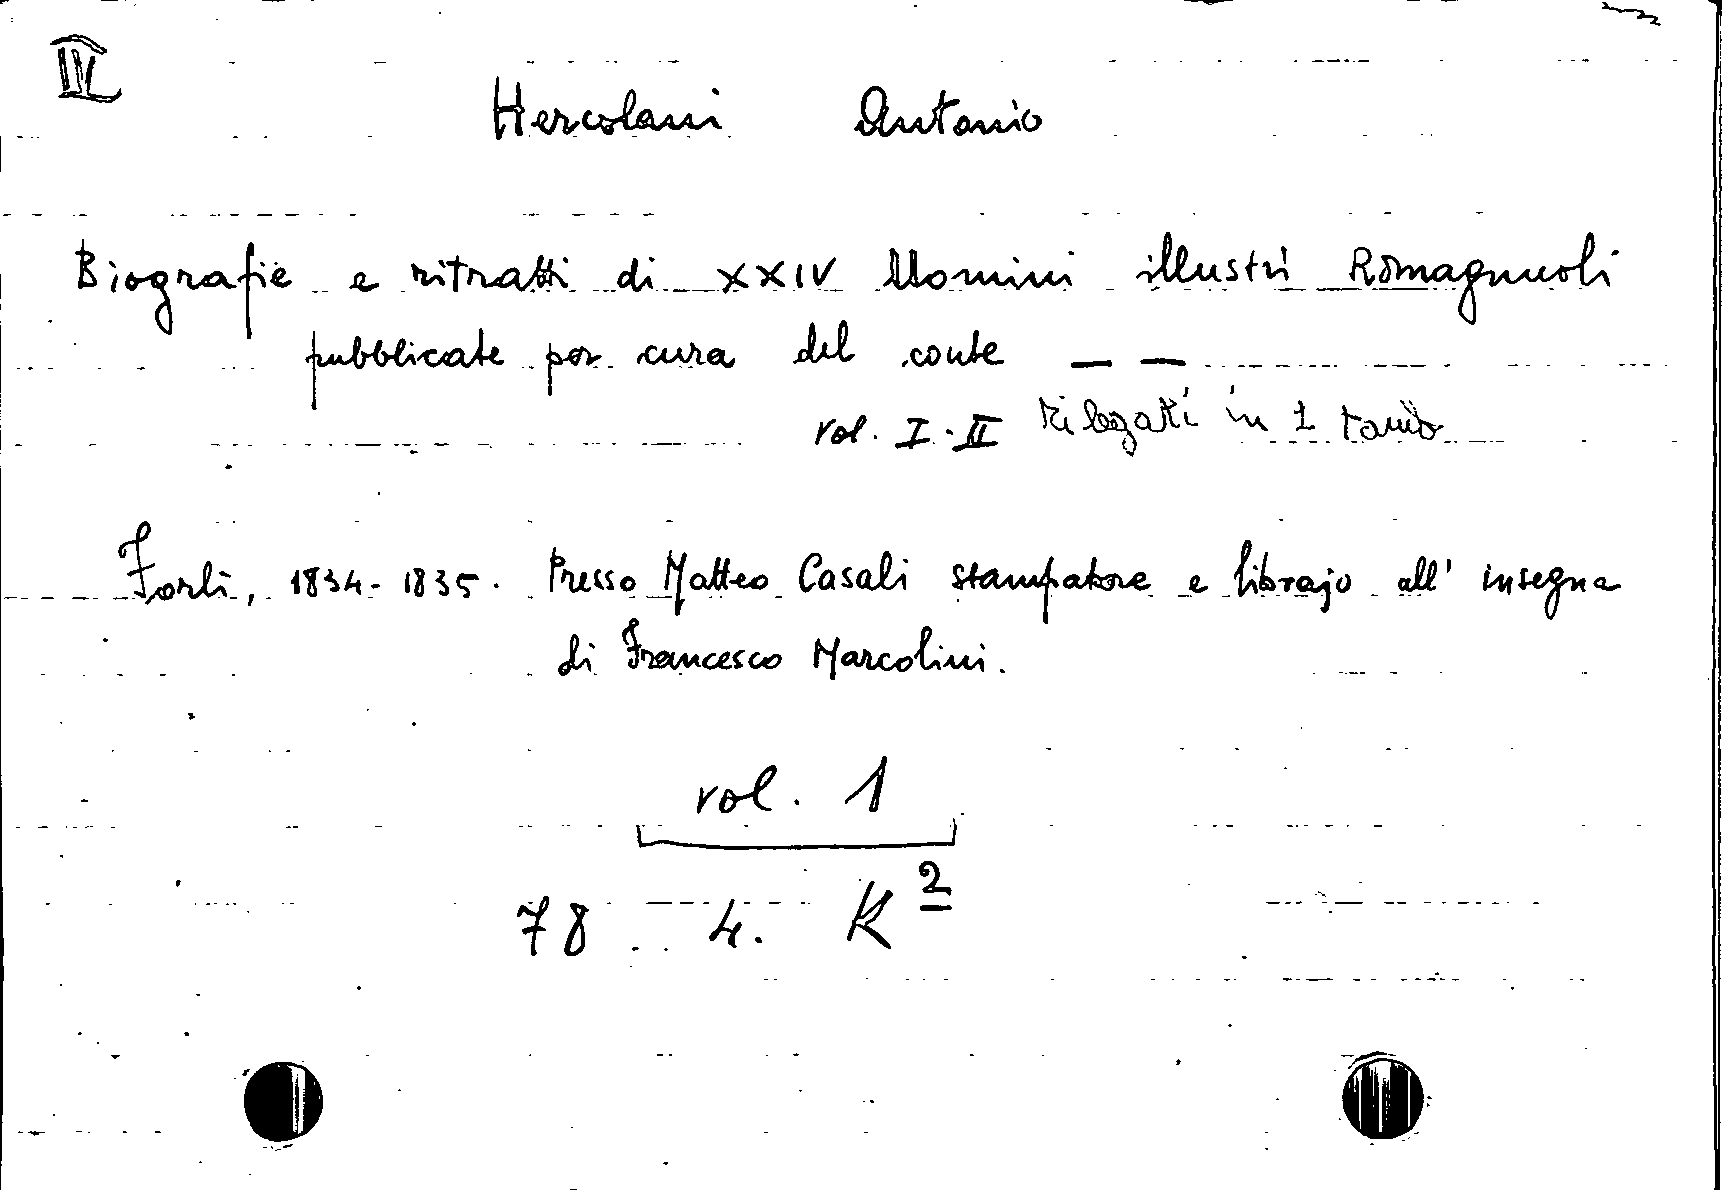 IV
Hercolani Antonio
Biografie e ritratti di XXIV Uomini illustri Romagnuoli
pubblicate per cura del conte — —
vol. I-II rilegati in 1 tomo
Forlì, 1834-1835. Presso Matteo Casali stampatore e librajo all' insegna
di Francesco Marcolini.
vol. 1
78 4. K 2